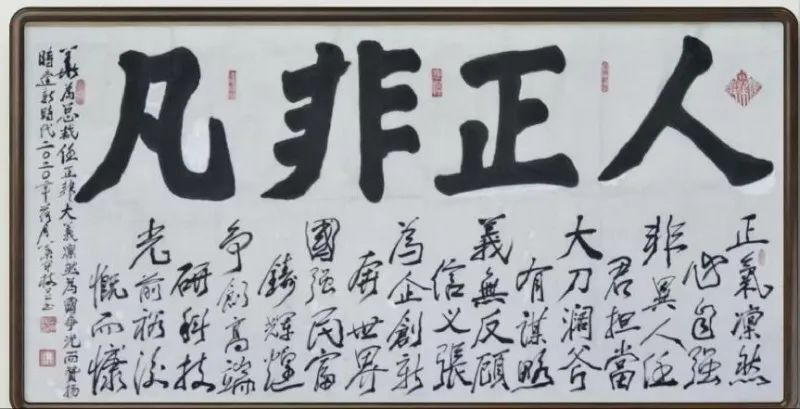 人正非凡
正氣凜然
必自强
非異人任
君担當
大刀濶斧
有謀略
義無反顧
信义張
為企創新
世界
國强民富
鑄輝煌
争創高端
研科技
光前裕後
慨而慷
華為总裁任正非大義凜然為國争光而贊揚
時逢新時代二〇二〇年